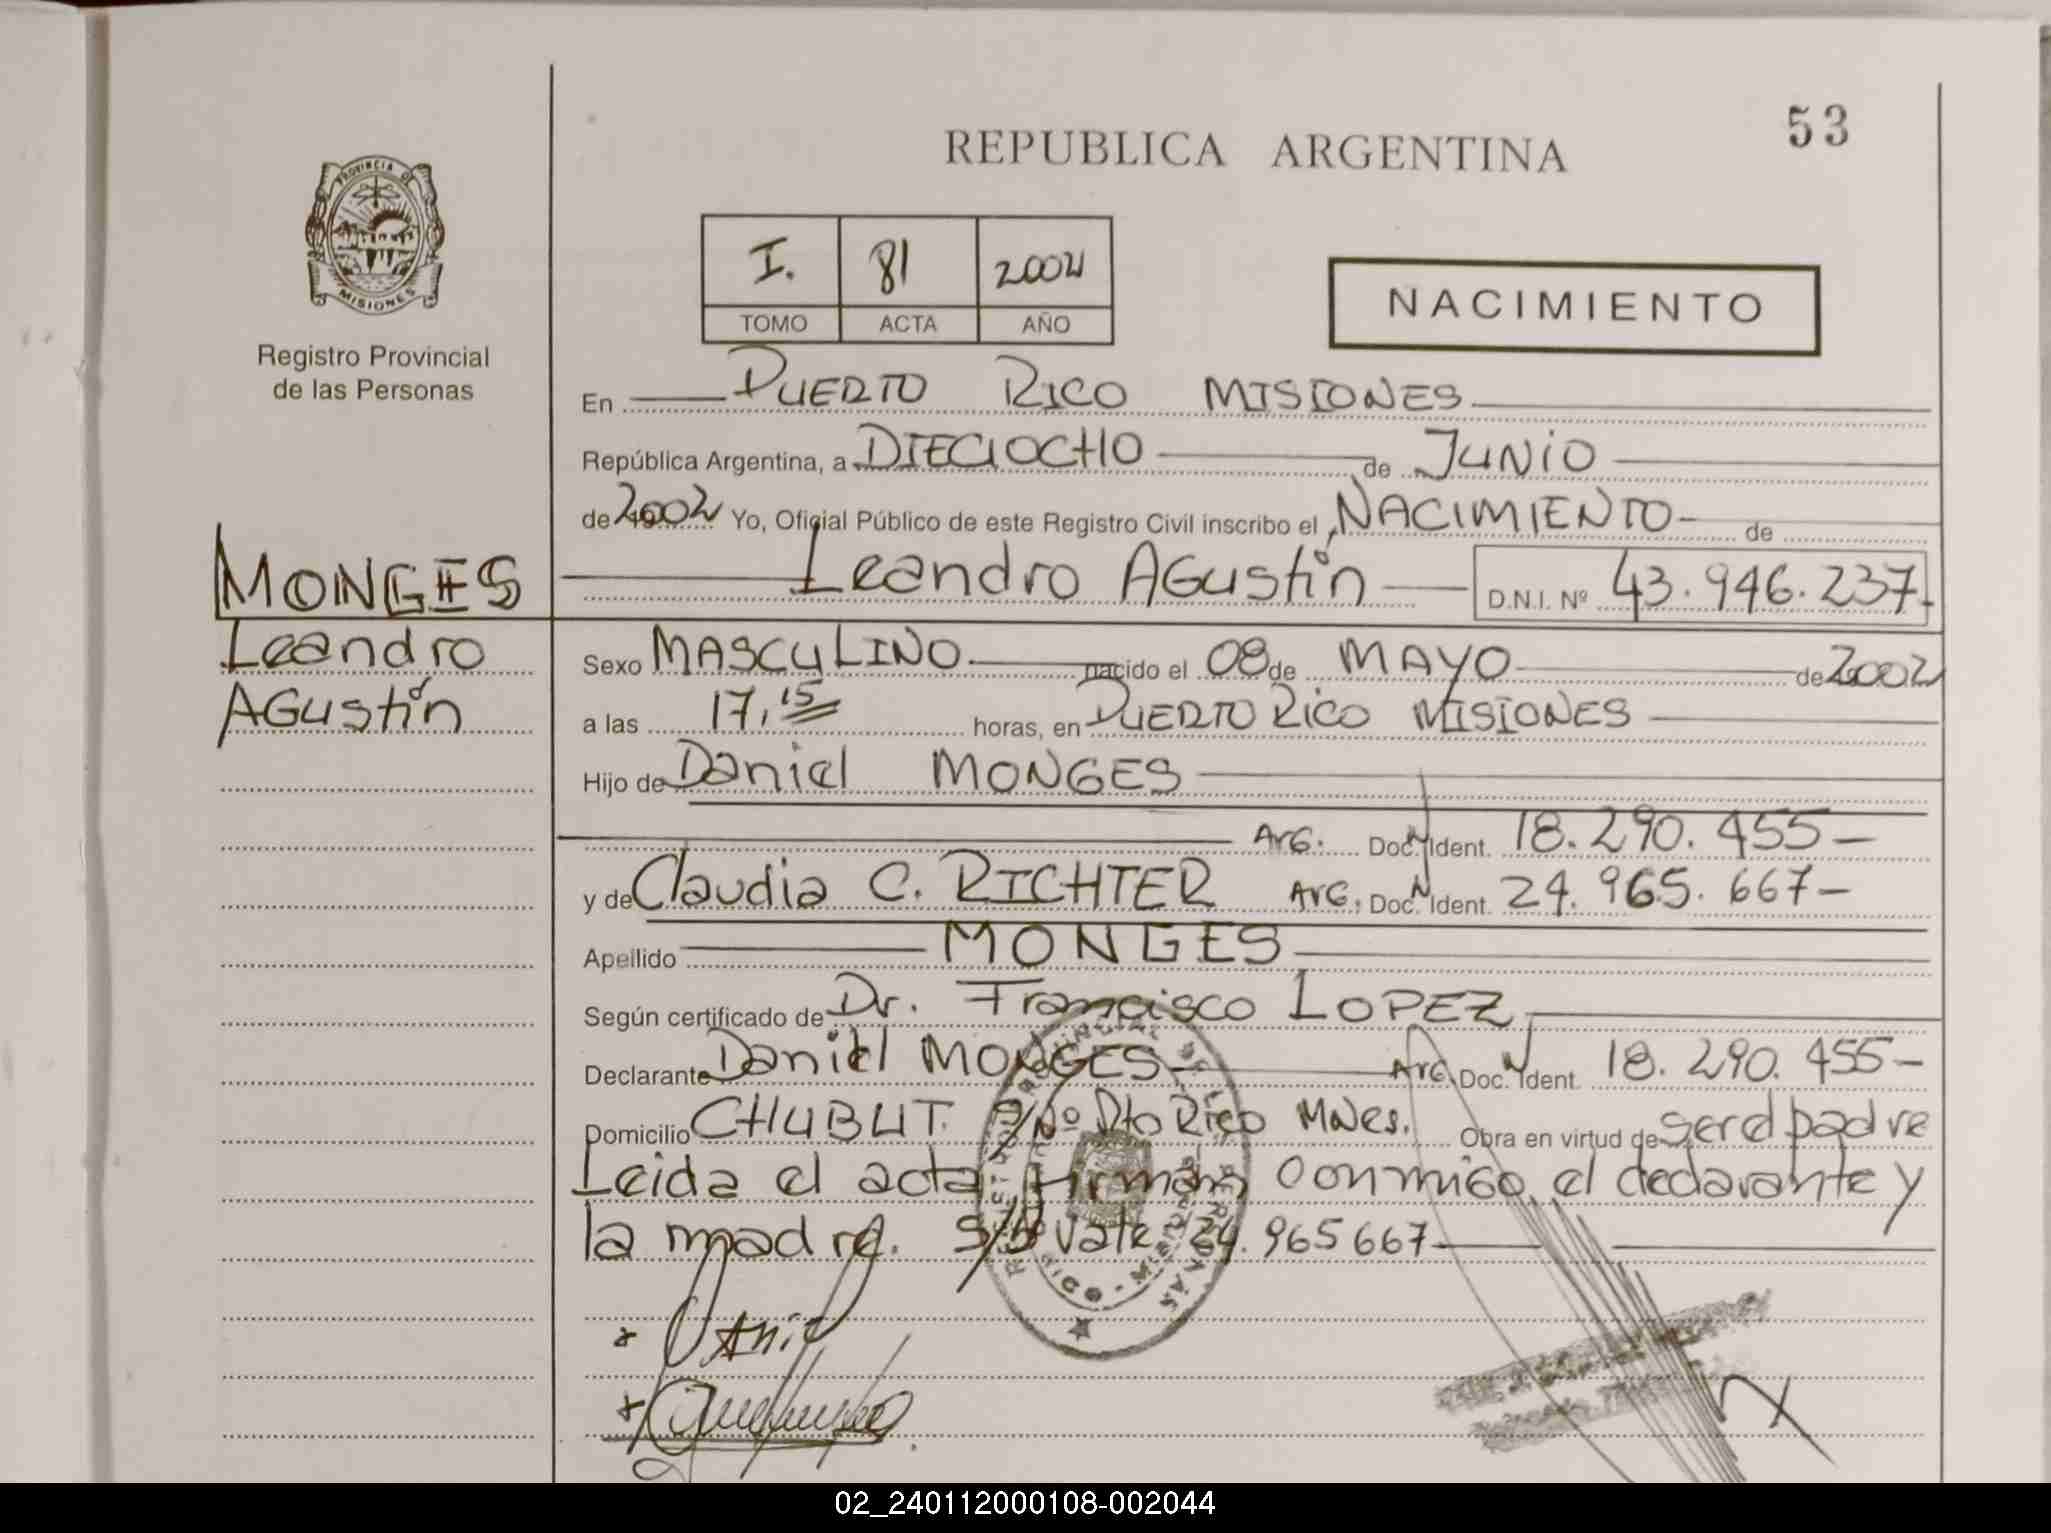 REPUBLICA ARGENTINA
53
PROVINCIA DE
MISIONES
Registro Provincial
de las Personas
I. 81 2002
TOMO ACTA AÑO
NACIMIENTO
En PUERTO RICO MISIONES
República Argentina, a DIECIOCHO de JUNIO
de 2002 Yo, Oficial Público de este Registro Civil inscribo el NACIMIENTO de
MONGES
Leandro Agustín D.N.I. Nº 43.946.237
Leandro
Agustín
Sexo MASCULINO nacido el 08 de MAYO de 2002
a las 17,15 horas, en PUERTO RICO MISIONES
Hijo de Daniel MONGES
Arg. Doc. Ident. 18.290.455
y de Claudia C. RICHTER Arg. Doc. Ident. 24.965.667
Apellido MONGES
Según certificado de Dr. Francisco LOPEZ
Declarante Daniel MONGES Arg. Doc. Ident. 18.290.455
Domicilio CHUBUT S/Nº Pto Rico Mnes. Obra en virtud de ser el padre
Leida el acta, firman conmigo el declarante y
la madre. S/B Vale 24.965667
02_240112000108-002044